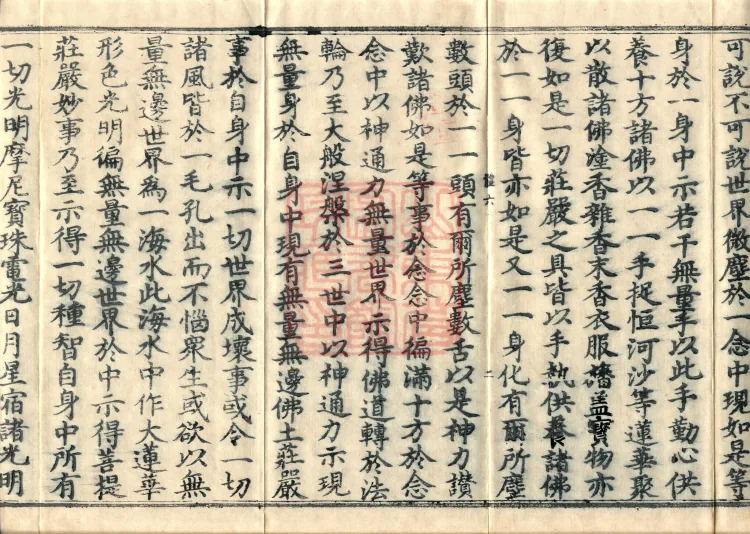 可說不可說世界微塵於一念中現如是等
身於一身中示若干無量手以此手勤心供
養十方諸佛以一一手捉恒河沙等蓮華聚
以散諸佛塗香雜香末香衣服旛盖寶物亦
復如是一切莊嚴之具皆以手執供養諸佛
於一一身皆亦如是又一一身化有爾所塵
數頭於一一頭有爾所塵數舌以是神力讃
歎諸佛如是等事於念念中徧滿十方於念
念中以神通力無量世界示得佛道轉於法
輪乃至大般涅槃於三世中以神通力示現
無量身於自身中現有無量無邊佛土莊嚴
事於自身中示一切世界成壞事或令一切
諸風皆於一毛孔出而不惱衆生或欲以無
量無邊世界為一海水此海水中作大蓮華
形色光明徧無量無邊世界於中示得菩提
莊嚴妙事乃至示得一切種智自身中所有
一切光明摩尼寶珠電光日月星宿諸光明